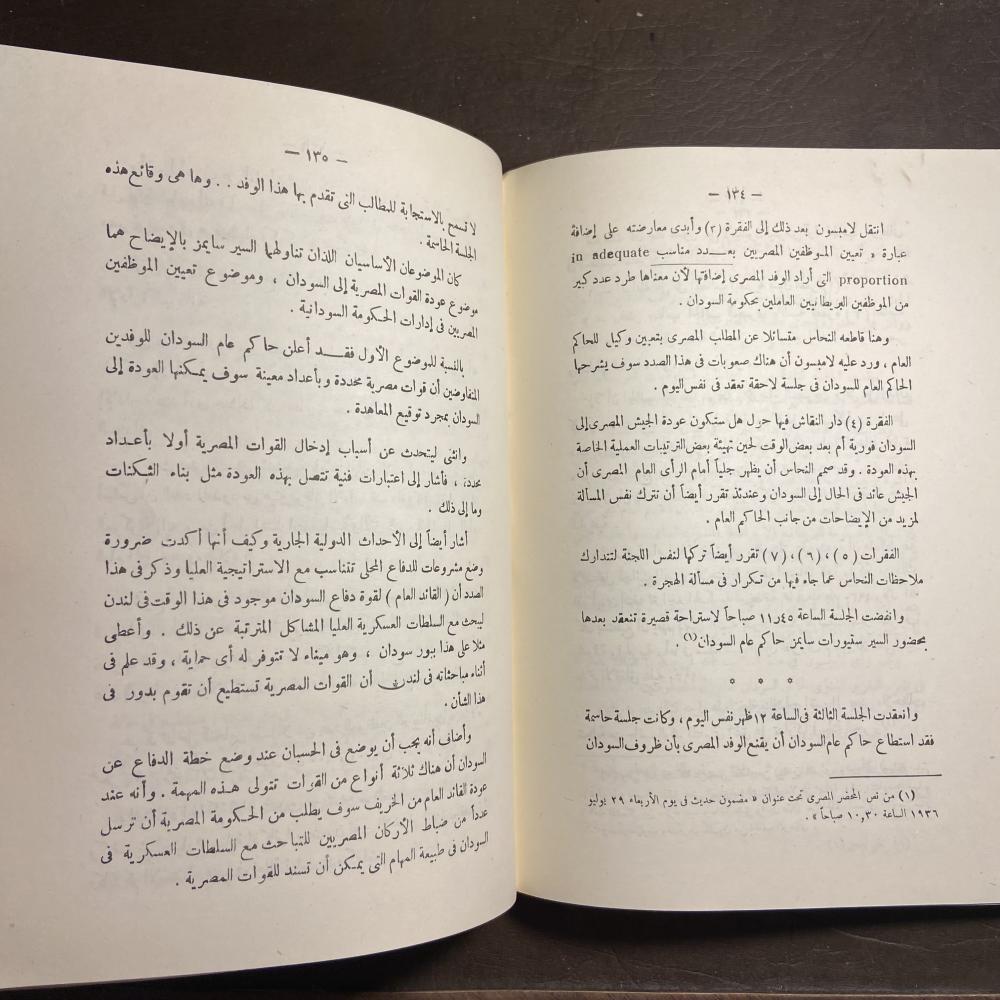 — ١٣٤ —
انتقل لامبسون بعد ذلك إلى الفقرة (٣) وأبدى معارضته على إضافة
عبارة « تعيين الموظفين المصريين بعـدد مناسب in adequate
proportion التى أراد الوفد المصرى إضافتها لأن معناها طرد عدد كبير
من الموظفين البريطانيين العاملين بحكومة السودان .
وهنا قاطعه النحاس متسائلا عن المطلب المصرى بتعيين وكيل للحاكم
العام ، ورد عليه لامبسون أن هناك صعوبات فى هذا الصدد سوف يشرحها
الحاكم العام للسودان فى جلسة لاحقة تعقد فى نفس اليوم .
الفقرة (٤) دار النقاش فيها حول هل ستكون عودة الجيش المصرى إلى
السودان فورية أم بعد بعض الوقت لحين تهيئة بعض الترتيبات العملية الخاصة
بهذه العودة . وقد صمم النحاس أن يظهر جلياً أمام الرأى العام المصرى أن
الجيش عائد فى الحال إلى السودان وعندئذ تقرر أيضاً أن تترك نفس المسألة
لمزيد من الإيضاحات من جانب الحاكم العام .
الفقرات (٥) ، (٦) ، (٧) تقرر أيضاً تركها لنفس اللجنة لتتدارك
ملاحظات النحاس عما جاء فيها من تكرار فى مسألة الهجرة .
وانفضت الجلسة الساعة ١١٫٤٥ صباحاً لاستراحة قصيرة تنعقد بعدها
بحضور السير ستيورات سايمز حاكم عام السودان (١) .
* * *
وانعقدت الجلسة الثالثة فى الساعة ١٢ ظهر نفس اليوم ، وكانت جلسة حاسمة
فقد استطاع حاكم عام السودان أن يقنع الوفد المصرى بأن ظروف السودان
(١) من نص المحضر المصرى تحت عنوان « مضمون حديث فى يوم الأربعاء ٢٩ يوليو
١٩٣٦ الساعة ١٠٫٣٠ صباحاً » .
— ١٣٥ —
لا تسمح بالاستجابة للمطالب التى تقدم بها هذا الوفد . . وها هى وقائع هذه
الجلسة الحاسمة .
كان الموضوعان الأساسيان اللذان تناولهما السير سايمز بالإيضاح هما
موضوع عودة القوات المصرية إلى السودان ، وموضوع تعيين الموظفين
المصريين فى إدارات الحكومة السودانية .
بالنسبة للموضوع الأول فقـد أعلن حاكم عام السودان للوفدين
المتفاوضين أن قوات مصرية محددة وبأعداد معينة سوف يمكنها العودة إلى
السودان بمجرد توقيع المعاهدة .
وانثنى ليتحدث عن أسباب إدخال القوات المصرية أولا بأعـداد
محددة ، فأشار إلى اعتبارات فنية تتصل بهذه العودة مثل بناء الثكنات
وما إلى ذلك .
أشار أيضاً إلى الأحداث الدولية الجارية وكيف أنها أكدت ضرورة
وضع مشروعات للدفاع المحلى تتناسب مع الاستراتيجية العليا وذكر فى هذا
الصدد أن ( القائد العام ) لقوة دفاع السودان موجود فى هذا الوقت فى لندن
ليبحث مع السلطات العسكرية العليا المشاكل المترتبة عن ذلك . وأعطى
مثلا على هذا ببور سودان ، وهو ميناء لا تتوفر له أى حماية ، وقد علم فى
أثناء مباحثاته فى لندن أن القوات المصرية تستطيع أن تقوم بدور فى
هذا الشأن .
وأضاف أنه يجب أن يوضع فى الحسبان عند وضع خطة الدفاع عن
السودان أن هناك ثلاثة أنواع من القوات تتولى هـذه المهمة . وأنه عند
عودة القائد العام من الخريف سوف يطلب من الحكومة المصرية أن ترسل
عدداً من ضباط الأركان المصريين للتباحث مع السلطات العسكرية فى
السودان فى طبيعة المهام التى يمكن أن تسند للقوات المصرية .